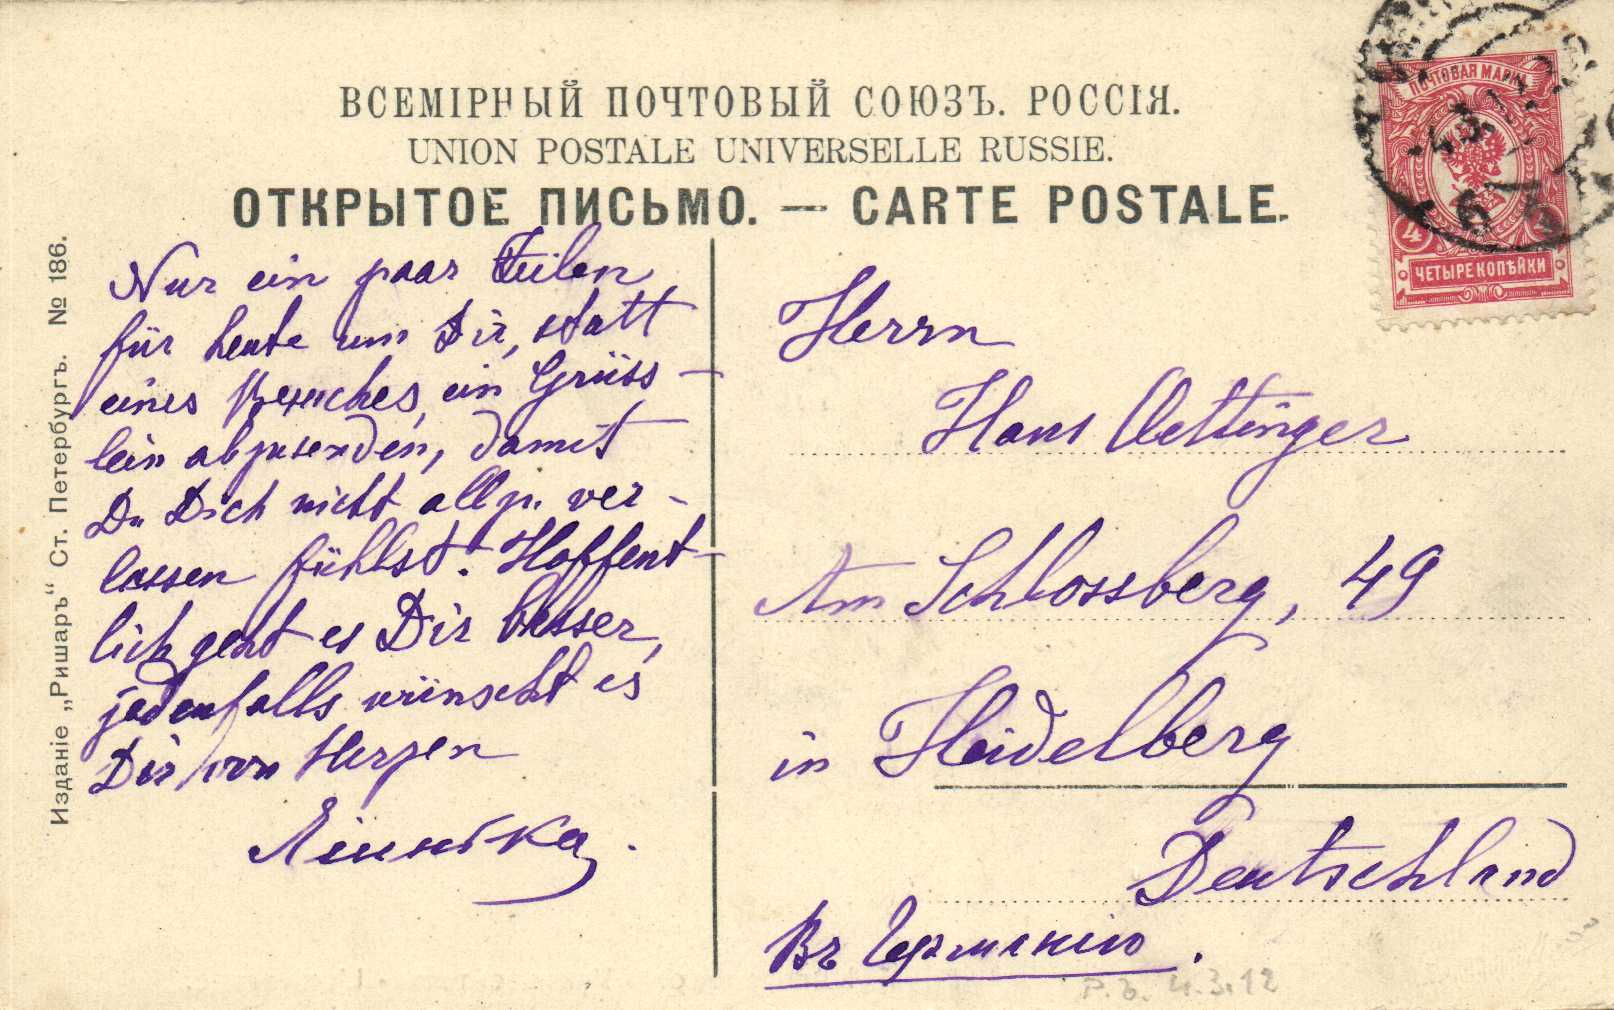 ВСЕМІРНЫЙ ПОЧТОВЫЙ СОЮЗЪ. РОССІЯ.
UNION POSTALE UNIVERSELLE RUSSIE.
ОТКРЫТОЕ ПИСЬМО. — CARTE POSTALE.
Изданіе „Ришаръ“ Ст. Петербургъ. № 186.
Nur ein paar Zeilen
für heute um Dir, statt
eines Besuches, ein Grüss-
lein abzusenden, damit
Du Dich nicht allzu ver-
lassen fühlst. Hoffent-
lich geht es Dir besser,
jedenfalls wünscht es
Dir von Herzen
Herrn
Hans Oettinger
Am Schlossberg, 49
in Heidelberg
Deutschland
Въ Германію.
ПОЧТОВАЯ МАРКА
4
ЧЕТЫРЕ КОПѢЙКИ
4.3.12